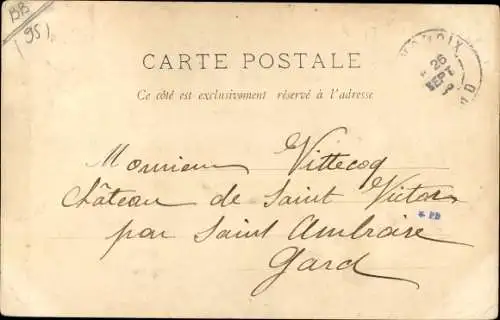 BB
(95)
CARTE POSTALE
26
SEPT
Ce côté est exclusivement réservé à l'adresse
Monsieur Vittecoq
Château de Saint Victor
* PB
par Saint Ambroise
Gard